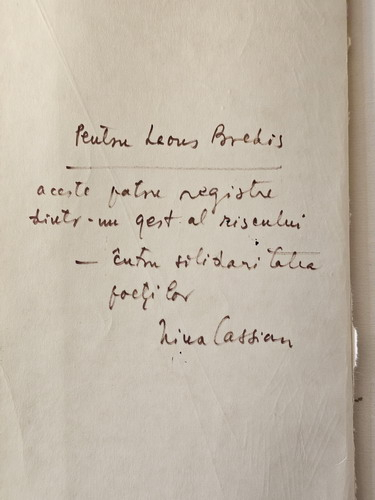 Pentru Leons Briedis
aceste patru registre
dintr-un gest al riscului
— întru solidaritatea
poeţilor
Nina Cassian